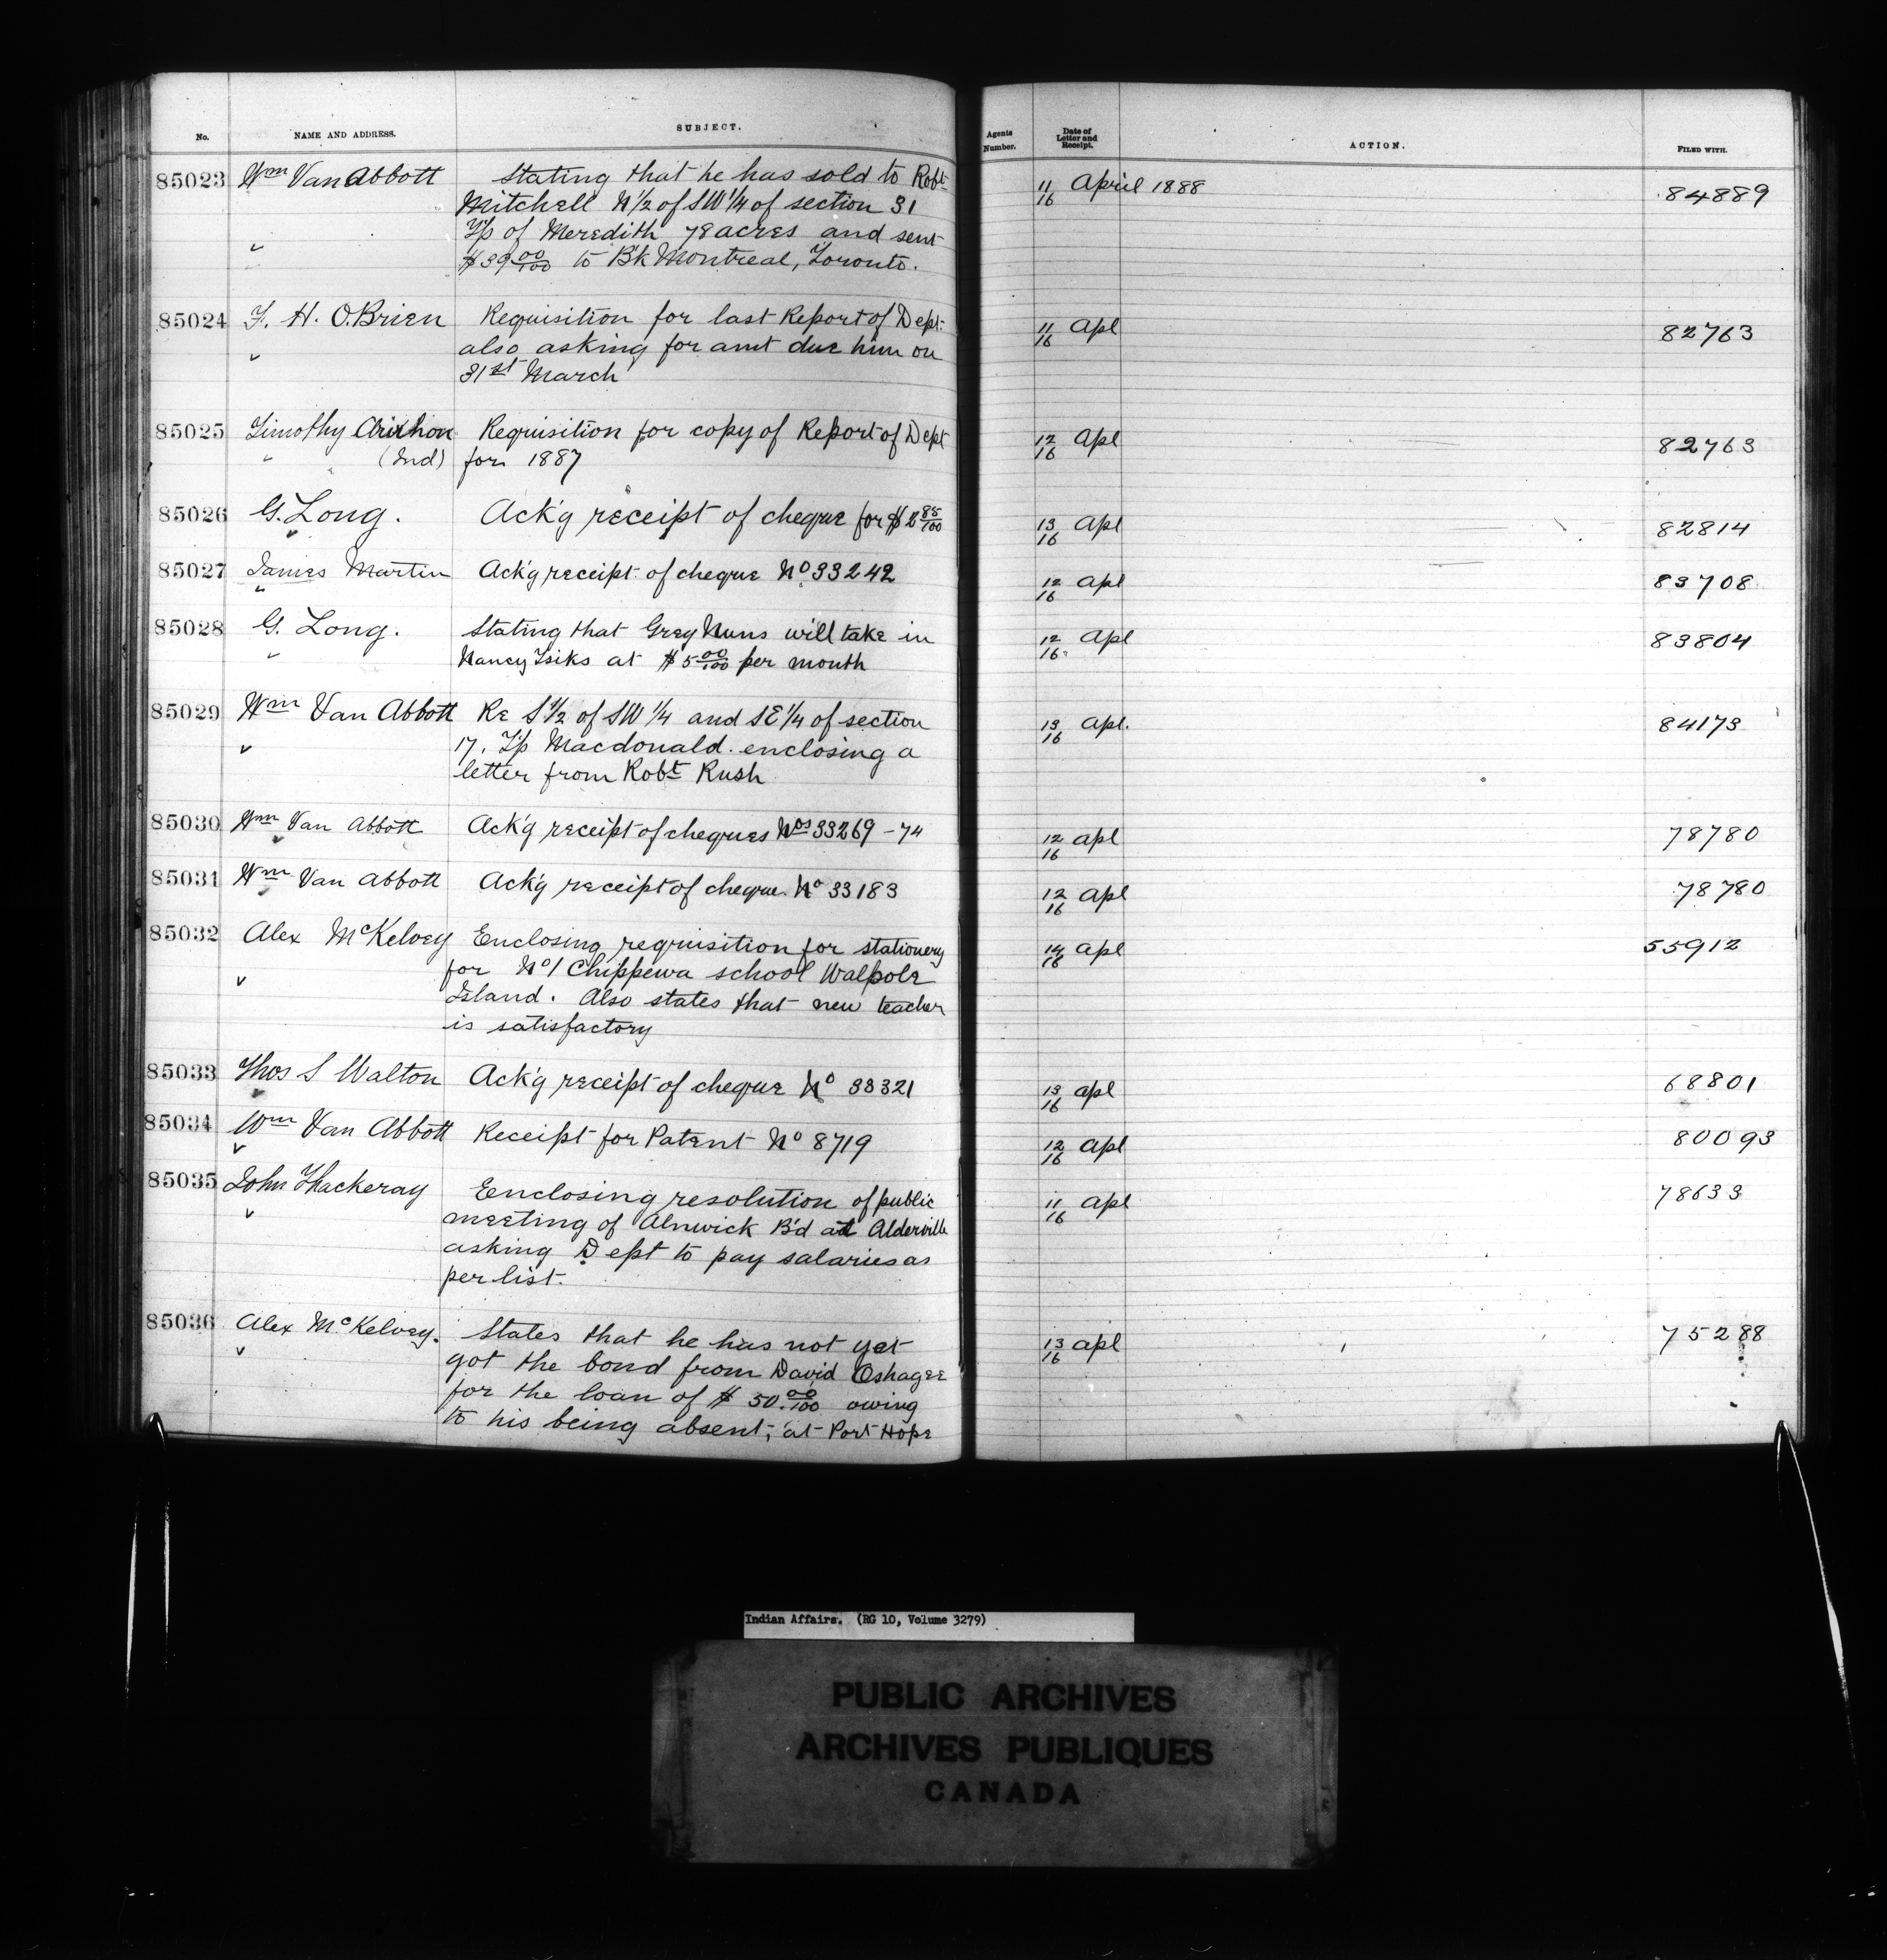 No. NAME AND ADDRESS. SUBJECT. Agents Number. Date of Letter and Receipt. ACTION. FILED WITH.
85023 Wm Van Abbott Stating that he has sold to Robt 11/16 April 1888 84889
Mitchell N 1/2 of SW 1/4 of section 31
T/p of Meredith 78 acres and sent
$39 00/100 to B'k Montreal, Toronto.
85024 F. H. O.Brien Requisition for last Report of Dept: 11/16 Apl 82763
also asking for amt due him on
31st March
85025 Timothy Requisition for copy of Report of Dept 12/16 Apl 82763
(Ind) for 1887
85026 G. Long. Ack'g receipt of cheque for $2 85/100 13/16 Apl 82814
85027 James Martin Ack'g receipt of cheque No 33242 12/16 Apl 83708
85028 G. Long. Stating that Grey Nuns will take in 12/16 Apl 83804
Nancy Isiks at $5 00/100 per month
85029 Wm Van Abbott Re S 1/2 of SW 1/4 and SE 1/4 of section 13/16 Apl. 84173
17. T/p Macdonald. enclosing a
letter from Robt Rush
85030 Wm Van Abbott Ack'g receipt of cheques Nos 33269-74 12/16 Apl 78780
85031 Wm Van Abbott Ack'g receipt of cheque No 33183 12/16 Apl 78780
85032 Alex McKelvey Enclosing requisition for stationery 14/16 Apl 55912
for No 1 Chippewa school Walpole
Island. Also states that new teacher
is satisfactory
85033 Thos S Walton Ack'g receipt of cheque No 33321 13/16 Apl 68801
85034 Wm Van Abbott Receipt for Patent No 8719 12/16 Apl 80093
85035 John Thackeray Eenclosing resolution of public 11/16 Apl 78633
meeting of Alnwick B'd at Alderville
asking Dept to pay salaries as
per list.
85036 Alex McKelvey. States that he has not yet 13/16 Apl 75288
got the bond from David Oshagee
for the loan of $50.00/100 owing
to his being absent; at Port Hope
Indian Affairs. (RG 10, Volume 3279)
PUBLIC ARCHIVES
ARCHIVES PUBLIQUES
CANADA